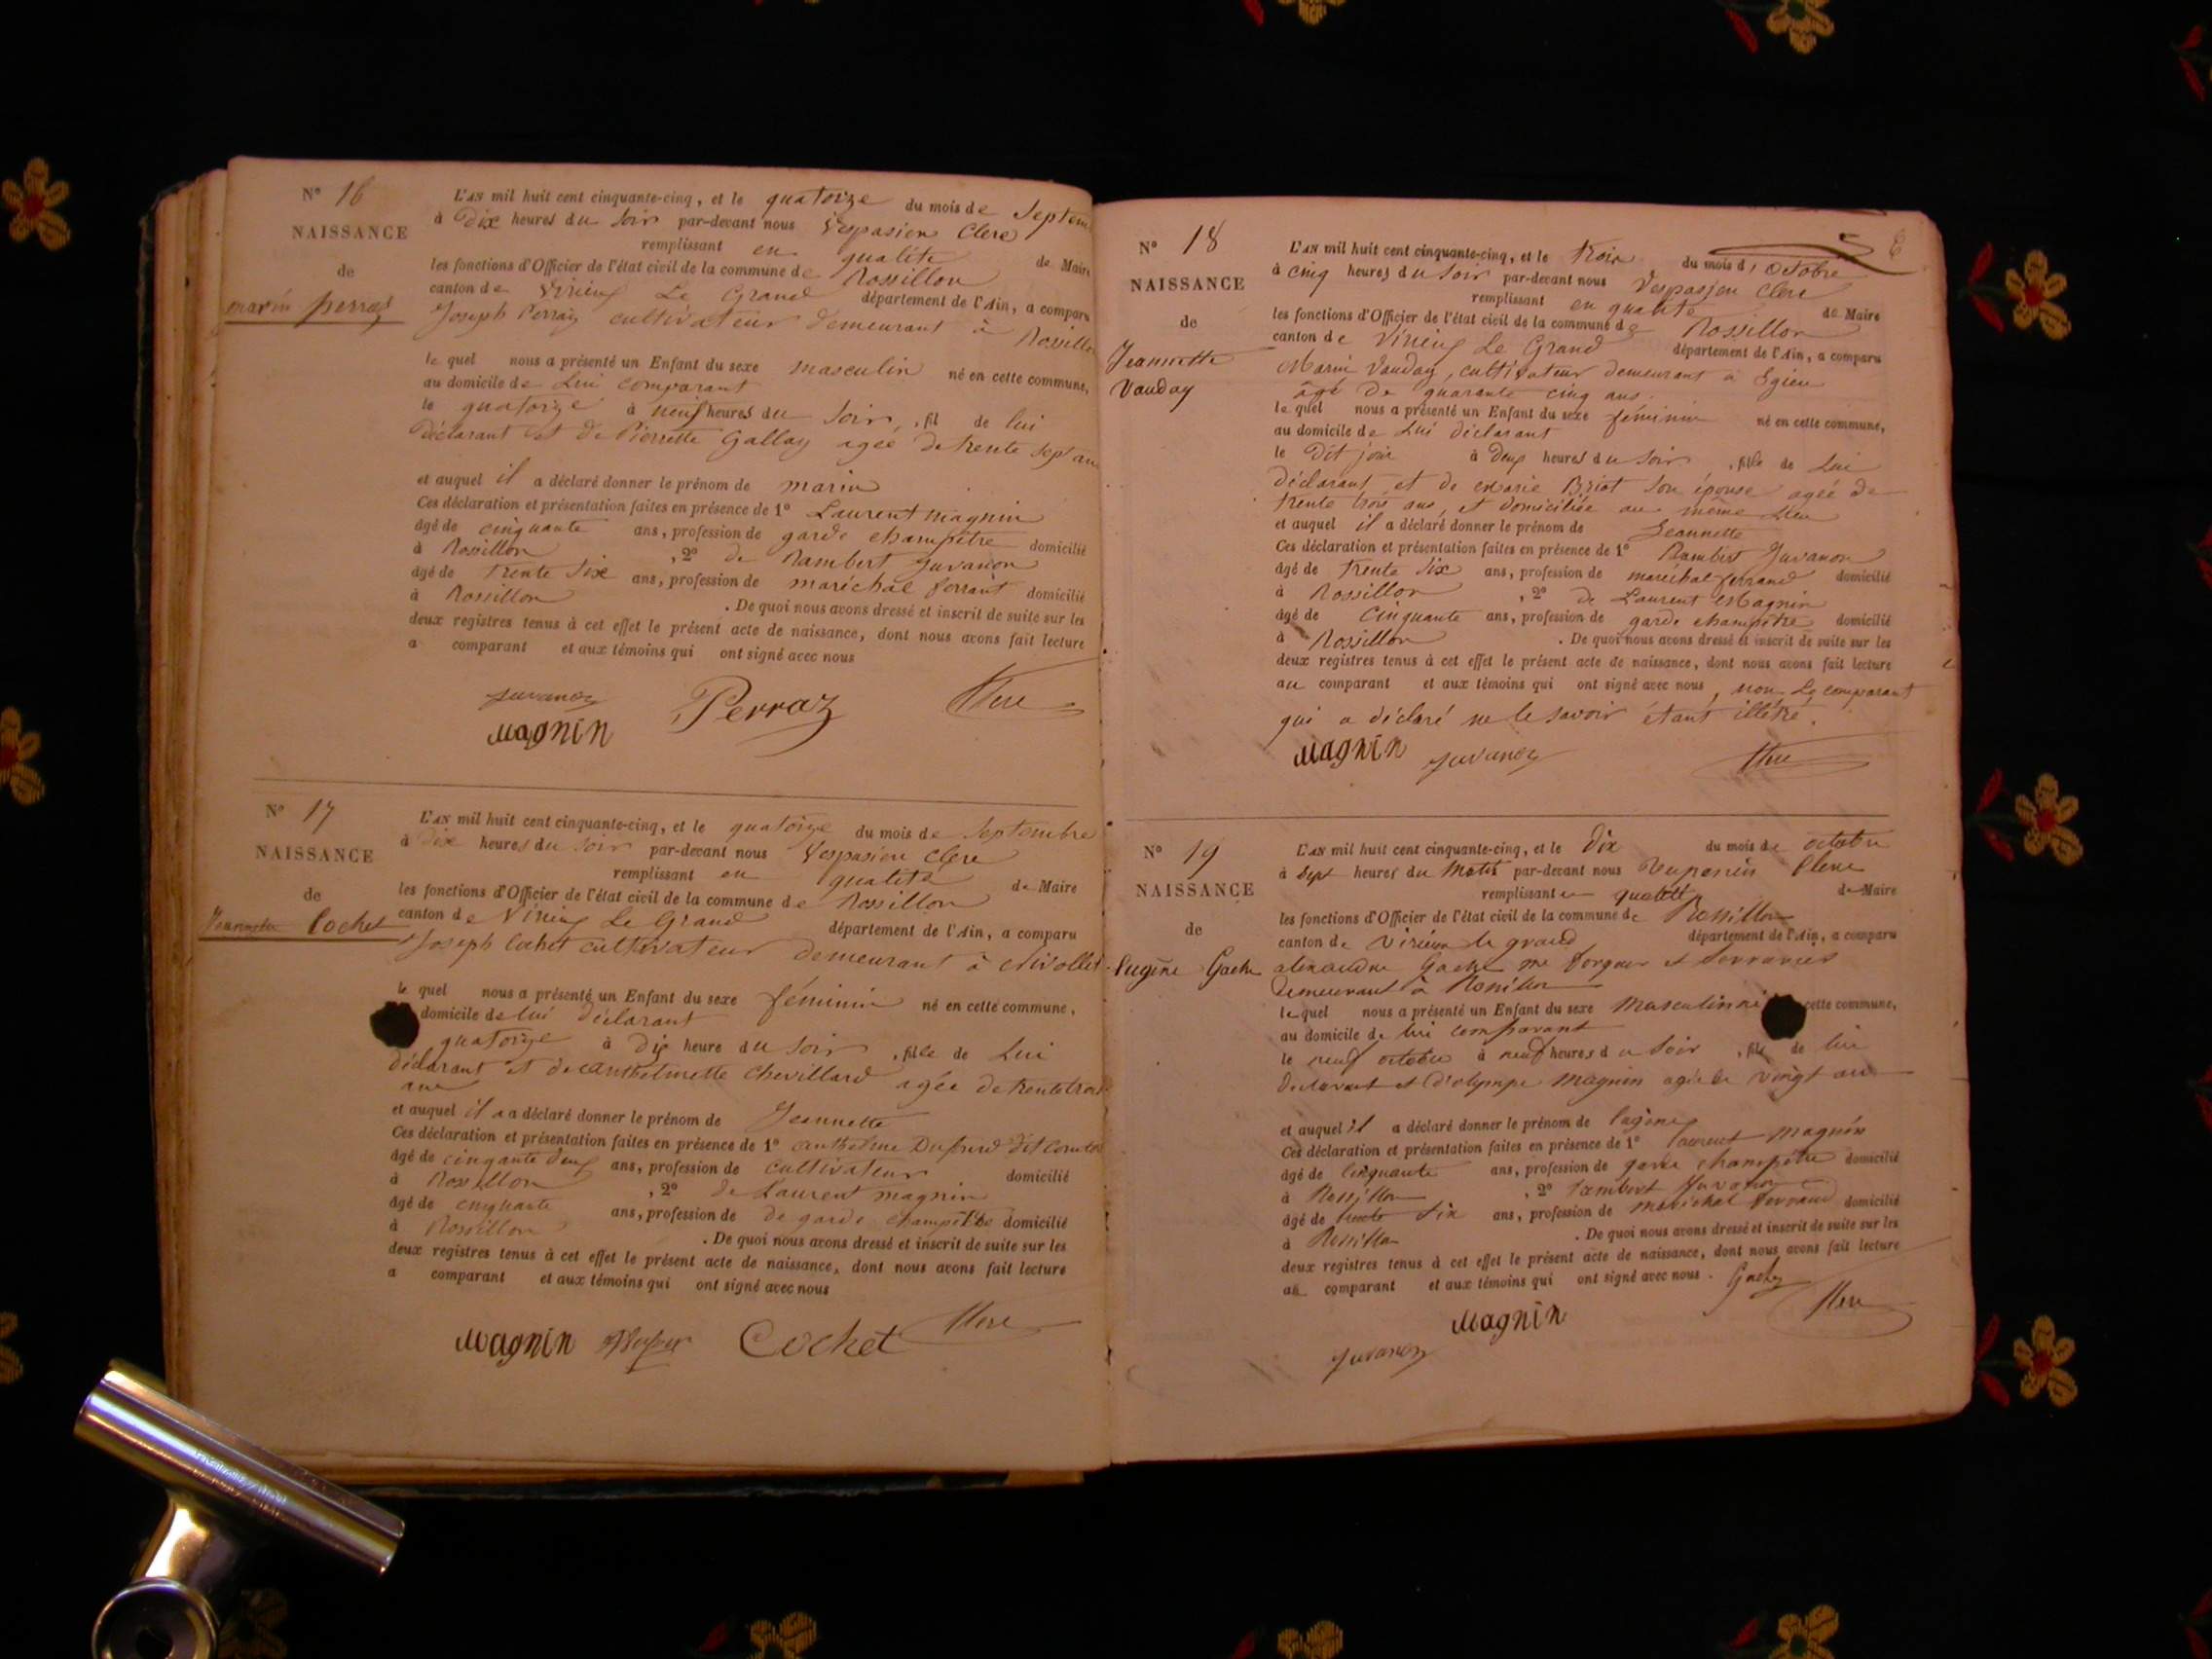 N° 16
NAISSANCE
de
marin perraz
L'AN mil huit cent cinquante-cinq, et le quatorze du mois de Septem
à Dix heures du Soir par-devant nous Vespasien Clerc
remplissant en qualité de Maire
les fonctions d'Officier de l'état civil de la commune de Rossillon
canton de Virieu Le Grand département de l'Ain, a comparu
Joseph Perraz cultivateur demeurant à Rossillon
le quel nous a présenté un Enfant du sexe masculin né en cette commune,
au domicile de Lui comparant
le quatorze à neuf heures du Soir, fil de lui
déclarant et de Pierrette Gallay agée de trente sept ans
et auquel il a déclaré donner le prénom de marin
Ces déclaration et présentation faites en présence de 1° Laurent magnin
âgé de cinquante ans, profession de garde champêtre domicilié
à Rossillon, 2° de Rambert Juvanon
âgé de trente Six ans, profession de maréchal ferrant domicilié
à Rossillon. De quoi nous avons dressé et inscrit de suite sur les
deux registres tenus à cet effet le présent acte de naissance, dont nous avons fait lecture
a comparant et aux témoins qui ont signé avec nous
Juvanon
Perraz
Clerc
Magnin
N° 17
NAISSANCE
de
Jeannette Cochet
L'AN mil huit cent cinquante-cinq, et le quatorze du mois de Septembre
à Dix heures du Soir par-devant nous Vespasien Clerc
remplissant en qualité de Maire
les fonctions d'Officier de l'état civil de la commune de Rossillon
canton de Virieu Le Grand département de l'Ain, a comparu
Joseph Cochet cultivateur demeurant à
le quel nous a présenté un Enfant du sexe féminin né en cette commune,
domicile de lui déclarant
quatorze à dix heure du Soir, fille de Lui
déclarant et de anthelmette Chevillard agée de trente trois
ans
et auquel il a déclaré donner le prénom de Jeannette
Ces déclaration et présentation faites en présence de 1° anthelme
âgé de cinqante deux ans, profession de cultivateur domicilié
à Rossillon, 2° de Laurent magnin
âgé de cinquante ans, profession de de garde champêtre domicilié
à Rossillon. De quoi nous avons dressé et inscrit de suite sur les
deux registres tenus à cet effet le présent acte de naissance, dont nous avons fait lecture
a comparant et aux témoins qui ont signé avec nous
Magnin Cochet Clerc
N° 18
NAISSANCE
de
Jeannette
Vauday
L'AN mil huit cent cinquante-cinq, et le trois du mois d'octobre
à cinq heures du Soir par-devant nous Vespasien Clerc
remplissant en qualité de Maire
les fonctions d'Officier de l'état civil de la commune de Rossillon
canton de Virieu Le Grand département de l'Ain, a comparu
Marin Vauday, cultivateur demeurant à Egieu
âgé de quarante cinq ans.
le quel nous a présenté un Enfant du sexe féminin né en cette commune,
au domicile de Lui déclarant
le dit jour à deux heures du Soir, fille de Lui
déclarant et de marie Briot son épouse agée de
trente trois ans, et domiciliée au même Lieu
et auquel il a déclaré donner le prénom de Jeannette
Ces déclaration et présentation faites en présence de 1° Rambert Juvanon
âgé de trente Six ans, profession de maréchal ferrand domicilié
à Rossillon, 2° de Laurent Magnin
âgé de Cinquante ans, profession de garde champêtre domicilié
à Rossillon. De quoi nous avons dressé et inscrit de suite sur les
deux registres tenus à cet effet le présent acte de naissance, dont nous avons fait lecture
au comparant et aux témoins qui ont signé avec nous, non Le comparant
qui a déclaré ne le savoir étant illétré.
Magnin Juvanon Clerc
N° 19
NAISSANCE
de
Eugène Gache
L'AN mil huit cent cinquante-cinq, et le Dix du mois de octobre
à Sept heures du Matin par-devant nous Vespasien Clerc
remplissant en qualité de Maire
les fonctions d'Officier de l'état civil de la commune de Rossillon
canton de Virieu le grand département de l'Ain, a comparu
alexandre Gache me forgeur et
demeurant à Rossillon
le quel nous a présenté un Enfant du sexe Masculin né cette commune,
au domicile de lui comparant
le neuf octobre à neuf heures du Soir, fils de lui
Déclarant et d'olympe Magnin agée de vingt ans
et auquel il a déclaré donner le prénom de Eugène
Ces déclaration et présentation faites en présence de 1° laurent Magnin
âgé de Cinquante ans, profession de garde champêtre domicilié
à Rossillon, 2° rambert Juvanon
âgé de trente Six ans, profession de maréchal ferrand domicilié
à Rossillon. De quoi nous avons dressé et inscrit de suite sur les
deux registres tenus à cet effet le présent acte de naissance, dont nous avons fait lecture
au comparant et aux témoins qui ont signé avec nous. Gache
Magnin Clerc
Juvanon